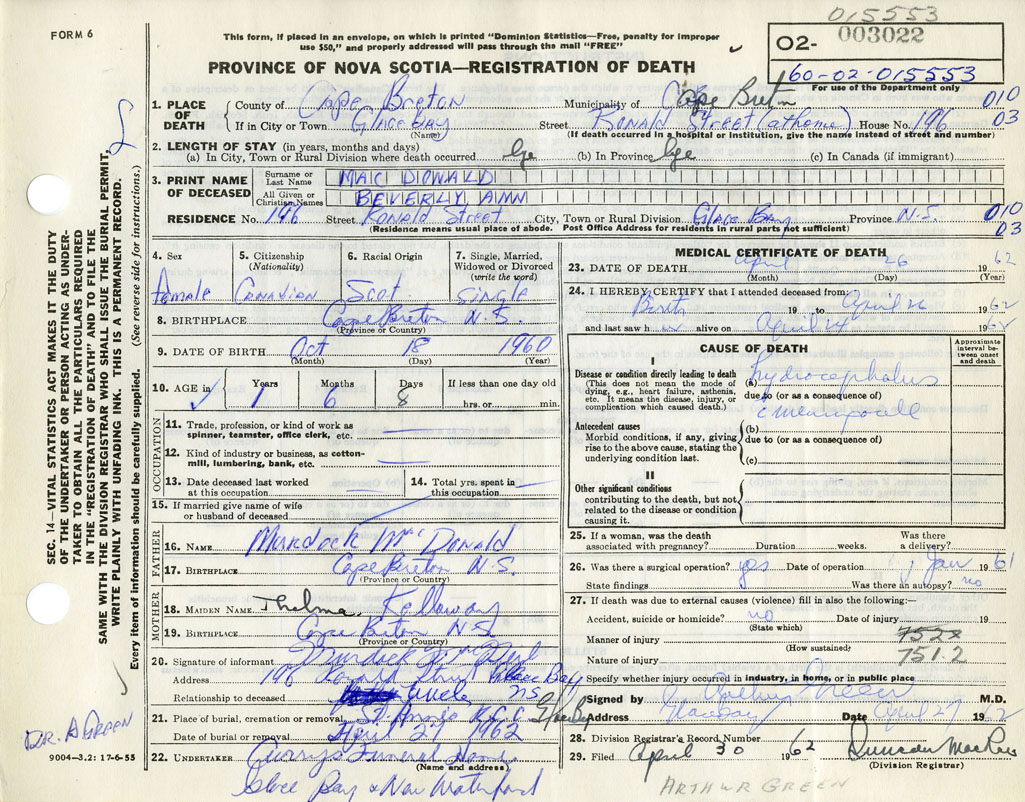 015553
FORM 6
This form, if placed in an envelope, on which is printed "Dominion Statistics—Free, penalty for improper
use $50," and properly addressed will pass through the mail "FREE"
02- 003022
60-02-015553
For use of the Department only
PROVINCE OF NOVA SCOTIA—REGISTRATION OF DEATH
1. PLACE OF DEATH County of Cape Breton Municipality of Cape Breton 010
If in City or Town Glace Bay Street Ronald Street (at home) House No. 196 03
(Name) (If death occurred in a hospital or institution, give the name instead of street and number)
2. LENGTH OF STAY (in years, months and days)
(a) In City, Town or Rural Division where death occurred lye (b) In Province lye (c) In Canada (if immigrant)
3. PRINT NAME OF DECEASED Surname or Last Name MAC DONALD
All Given or Christian Names BEVERLY ANN
RESIDENCE No. 196 Street Ronald Street City, Town or Rural Division Glace Bay Province N.S. 010
(Residence means usual place of abode. Post Office Address for residents in rural parts not sufficient) 03
4. Sex 5. Citizenship (Nationality) 6. Racial Origin 7. Single, Married, Widowed or Divorced (write the word)
Female Canadian Scot Single
8. BIRTHPLACE Cape Breton N.S.
(Province or Country)
9. DATE OF BIRTH Oct 18 1960
(Month) (Day) (Year)
10. AGE in Years Months Days If less than one day old
1 6 8 hrs. or min.
OCCUPATION
11. Trade, profession, or kind of work as
spinner, teamster, office clerk, etc.
12. Kind of industry or business, as cotton-
mill, lumbering, bank, etc.
13. Date deceased last worked at this occupation 14. Total yrs. spent in this occupation
15. If married give name of wife
or husband of deceased
FATHER
16. NAME Murdock McDonald
17. BIRTHPLACE Cape Breton N.S.
(Province or Country)
MOTHER
18. MAIDEN NAME Thelma Kelloway
19. BIRTHPLACE Cape Breton N.S.
(Province or Country)
20. Signature of informant
Address 196 Ronald Street Glace Bay
Relationship to deceased uncle N.S.
21. Place of burial, cremation or removal St. Anne's
Date of burial or removal April 27 1962
22. UNDERTAKER Curry's Funeral Home
(Name and address)
Glace Bay & New Waterford
MEDICAL CERTIFICATE OF DEATH
23. DATE OF DEATH April 26 1962
(Month) (Day) (Year)
24. I HEREBY CERTIFY that I attended deceased from:
Birth 19 to April 26 1962
and last saw h alive on April 24 1962
CAUSE OF DEATH
Approximate interval between onset and death
I
Disease or condition directly leading to death
(This does not mean the mode of
dying, e.g., heart failure, asthenia,
etc. It means the disease, injury, or
complication which caused death.)
(a) hydrocephalus
due to (or as a consequence of)
Antecedent causes
Morbid conditions, if any, giving
rise to the above cause, stating the
underlying condition last.
(b)
due to (or as a consequence of)
(c)
II
Other significant conditions
contributing to the death, but not
related to the disease or condition
causing it.
25. If a woman, was the death associated with pregnancy? Duration weeks. Was there a delivery?
26. Was there a surgical operation? yes Date of operation Jan 1961
State findings Was there an autopsy? no
27. If death was due to external causes (violence) fill in also the following:—
Accident, suicide or homicide? no Date of injury 19
(State which)
Manner of injury 752x
(How sustained)
Nature of injury 751.2
Specify whether injury occurred in industry, in home, or in public place
Signed by Arthur Green M.D.
Address Glace Bay Date April 27 1962
28. Division Registrar's Record Number
29. Filed April 30 1962 Duncan MacRae
(Division Registrar)
ARTHUR GREEN
SEC. 14.—VITAL STATISTICS ACT MAKES IT THE DUTY
OF THE UNDERTAKER OR PERSON ACTING AS UNDER-
TAKER TO OBTAIN ALL THE PARTICULARS REQUIRED
IN THE "REGISTRATION OF DEATH" AND TO FILE THE
SAME WITH THE DIVISION REGISTRAR WHO SHALL ISSUE THE BURIAL PERMIT.
WRITE PLAINLY WITH UNFADING INK. THIS IS A PERMANENT RECORD.
Every item of information should be carefully supplied. (See reverse side for instructions.)
DR. A GREEN
9004—3.2: 17-6-55